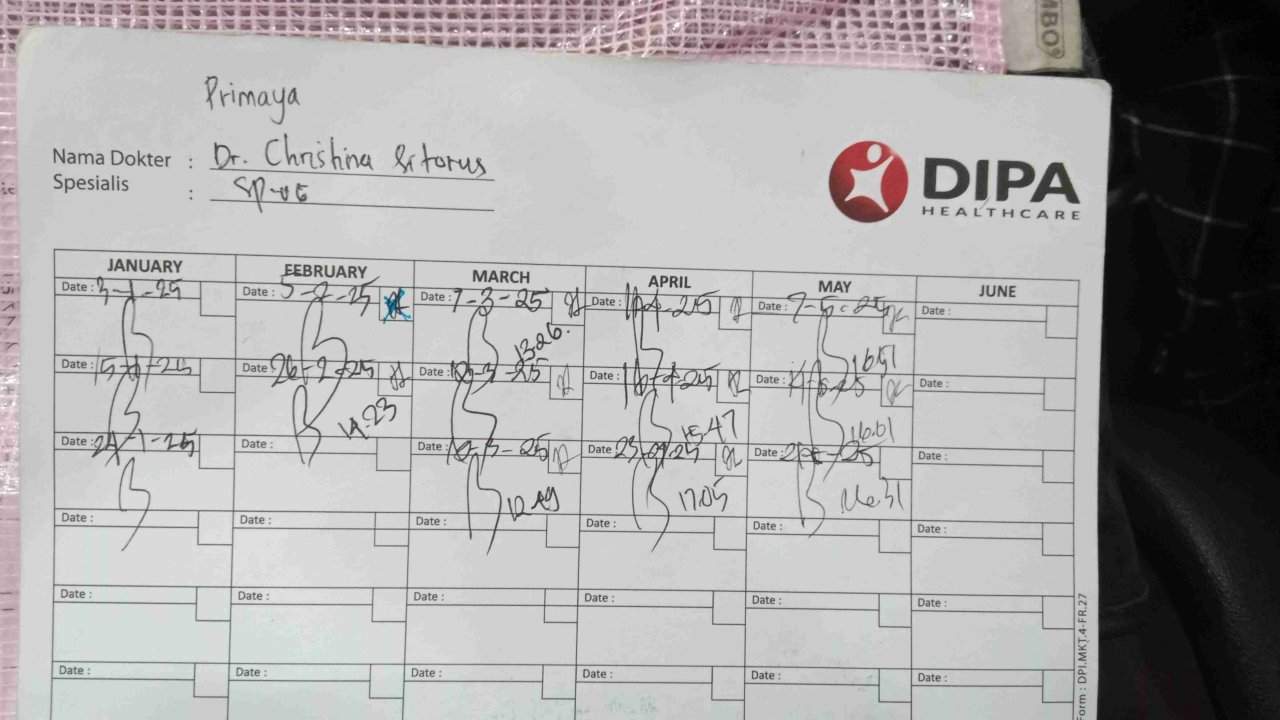 MBO
Primaya
Nama Dokter : Dr. Christina Sitorus
Spesialis :
DIPA
HEALTHCARE
JANUARY FEBRUARY MARCH APRIL MAY JUNE
Date : 3-1-25 Date : 5-2-25 Date : 7-3-25 Date : Date : 7-5-25 Date :
13.26. 16.51
Date : 15-1-25 Date : 26-2-25 Date : Date : 16-4-25 Date : Date :
14.23 15.47 16.01
Date : 24-1-25 Date : Date : Date : 23-4-25 Date : Date :
12.49 17.05 16.31
Date : Date : Date : Date : Date : Date :
Date : Date : Date : Date : Date : Date :
Date : Date : Date : Date : Date : Date :
Form : DPI.MKT.4-FR.27